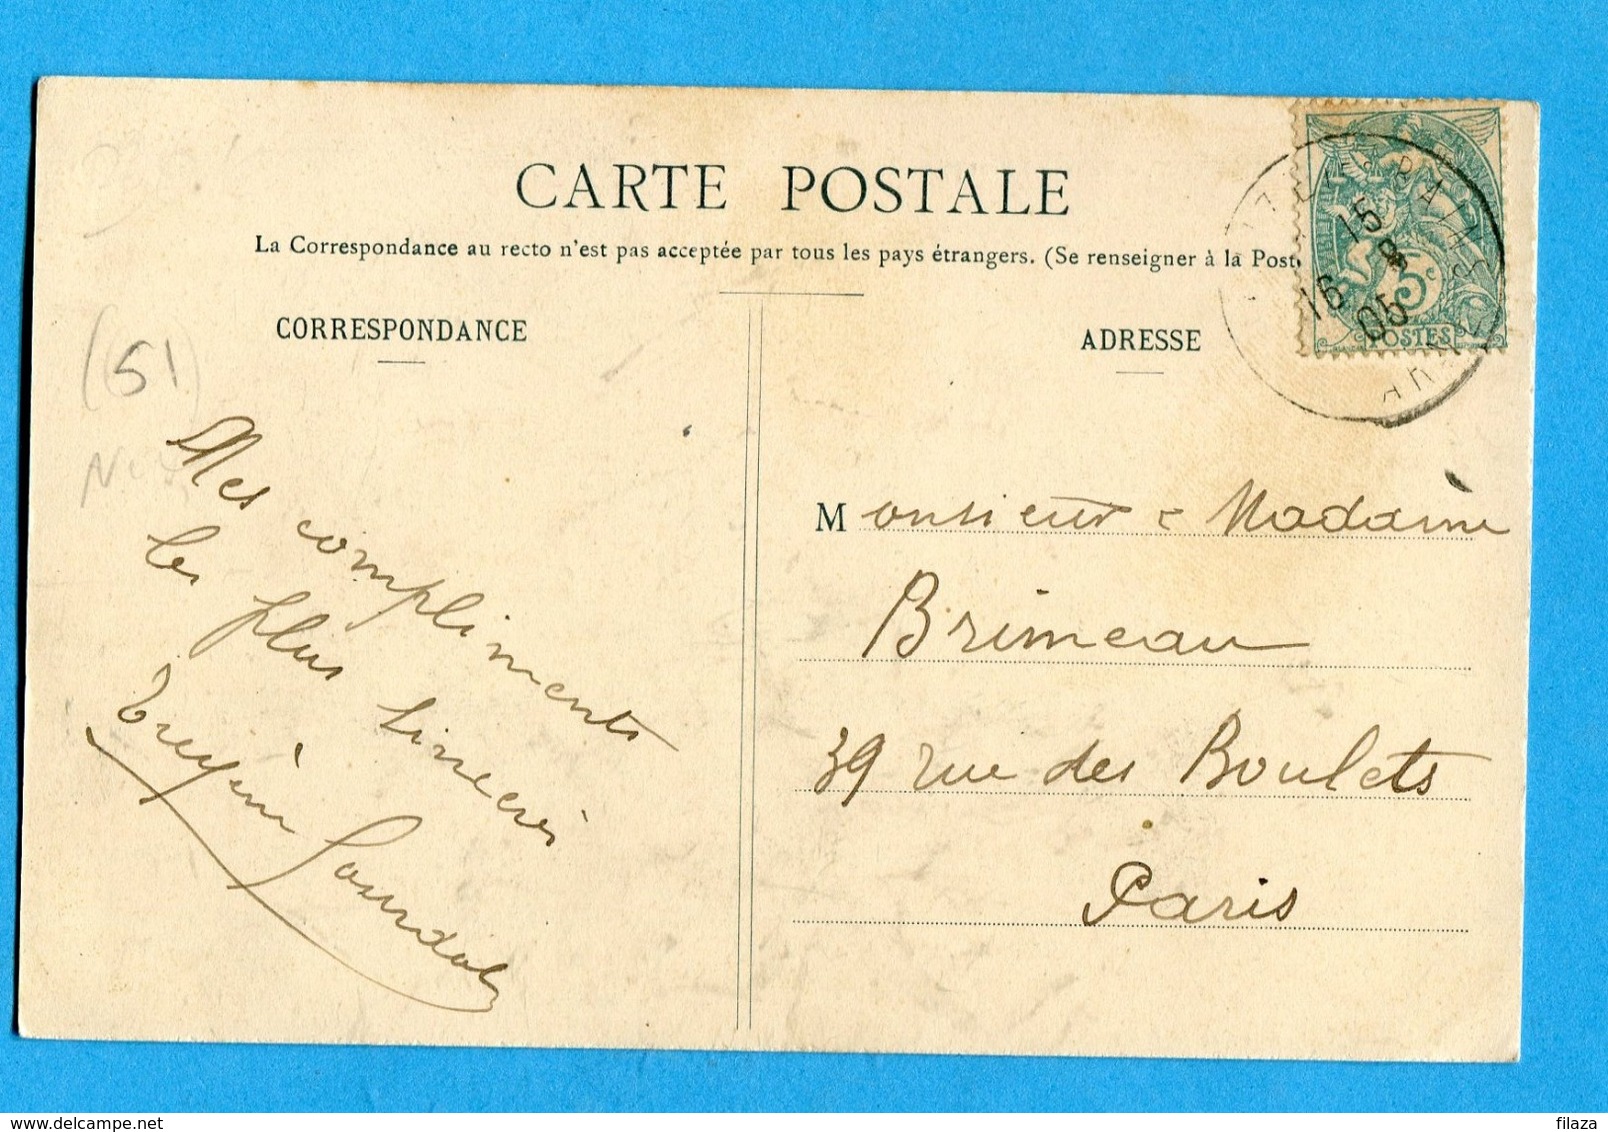 CARTE POSTALE
La Correspondance au recto n'est pas acceptée par tous les pays étrangers. (Se renseigner à la Post
CORRESPONDANCE
(51)
Mes compliments
les plus sincères
ADRESSE
15
16 8
05
5c
POSTES
Monsieur & Madame
Brimeau
39 rue des Boulets
Paris
filaza